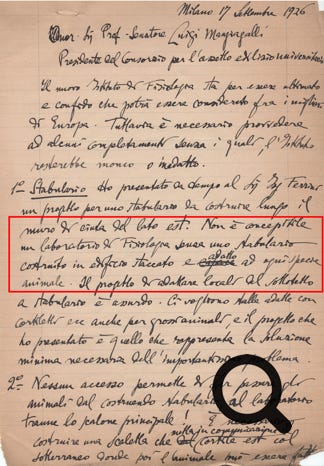 Milano 17 Settembre 1926
Onor. Sig Prof. Senatore Luigi Mangiagalli
Presidente del Consorzio per l'assetto edilizio universitario
Il nuovo Istituto di Fisiologia sta per essere ultimato
e confido che potrà essere considerato fra i migliori
di Europa. Tuttavia è necessario provvedere
ad alcuni completamenti senza i quali, l'Istituto
resterebbe monco o inadatto.
1º Stabulario Ho presentato da tempo al Sig Ing Ferrari
un progetto per uno stabulario da costruire lungo il
muro di cinta del lato est. Non è concepibile
un laboratorio di Fisiologia senza uno stabulario
costruito in edificio staccato e adatto ad ogni specie
animale. Il progetto di adattare locali del sottotetto
a stabulario è assurdo. Ci vogliono stalle adatte con
cortiletti ecc anche per grossi animali, e il progetto che
ho presentato è quello che rappresenta la soluzione
minima necessaria dell'importantissimo problema.
2º Nessun accesso permette di far passare gli
animali dal costruendo stabulario al laboratorio
tranne la porta principale! È
costruire una scaletta che metta in comunicazione il cortile est col
sotterraneo donde poi l'animale può essere